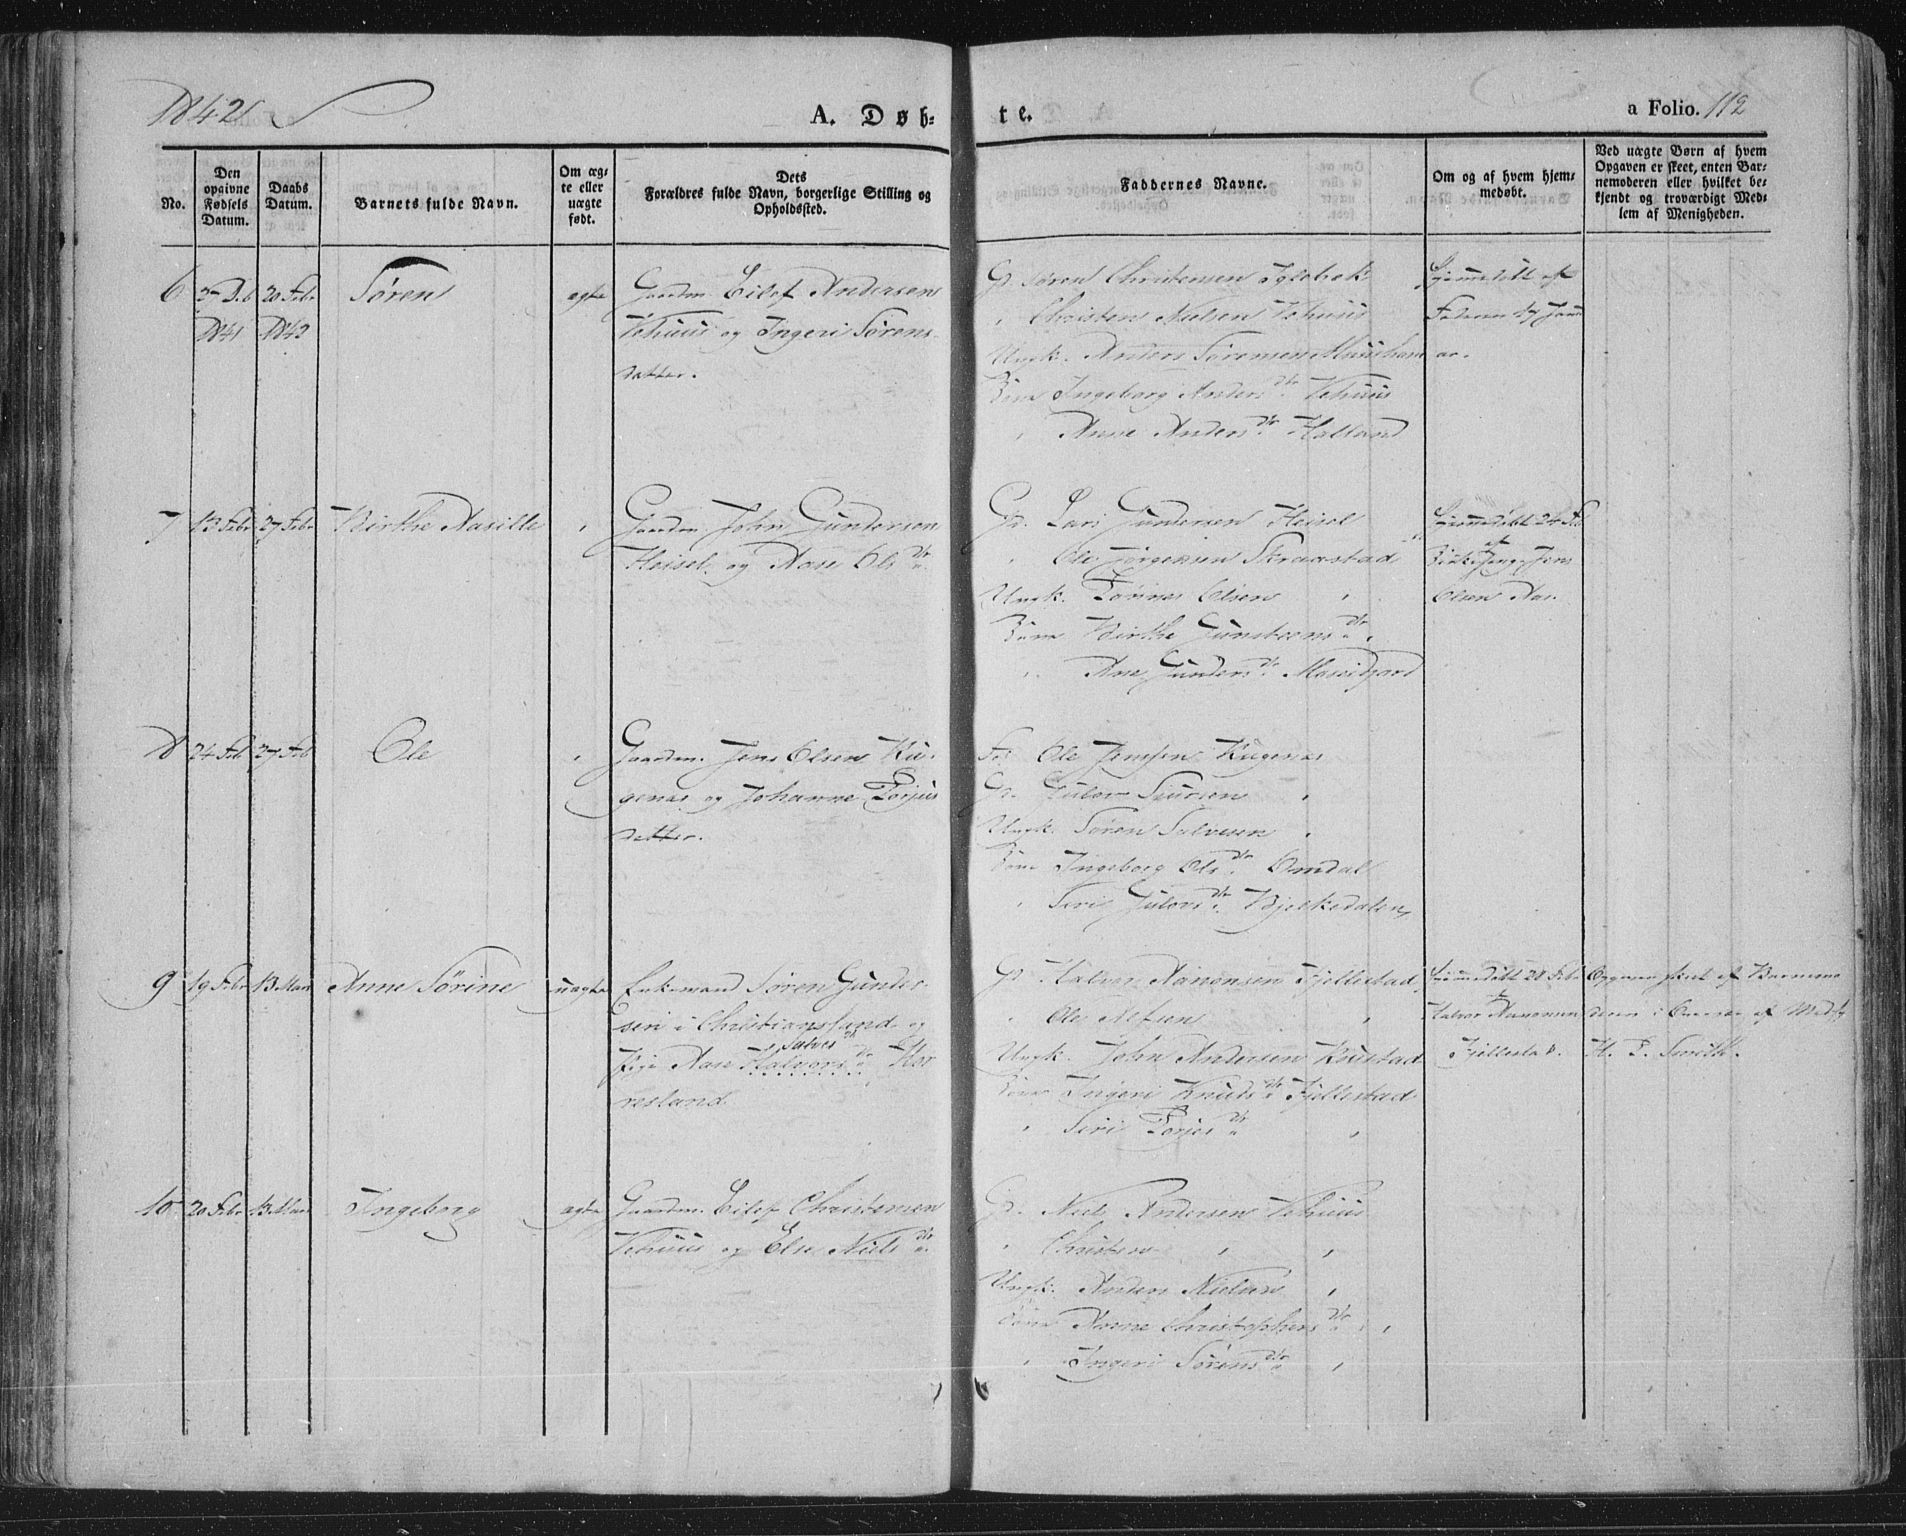 1842
A. Døb-
te.
a Folio. 112
No.
Den
opgivne
Fødsels
Datum.
Daabs
Datum.
Barnets fulde Navn.
Om æg-
te eller
uægte
født.
Dets
Forældres fulde Navn, borgerlige Stilling og
Opholdssted.
Faddernes Navne.
Om og af hvem hjem-
medøbt.
Ved uægte Børn af hvem
Opgaven er skeet, enten Bar-
nemoderen eller hvilket be-
kjendt og troværdigt Med-
lem af Menigheden.
6
27 Deb
1841
20 Febr
1842
Søren
ægte
Gaardm. Eilef Andersen
Vehuus og Ingeri Sørens-
datter.
Gd. Søren Christensen
Christen Nielsen Vehuus
Ungk. Anders Sørensen
Ingeborg Anders dtr. Vehuus
Anne Anders dtr. Halland
Hjemmedøbt af
Faderen 17 Janu
ar.
7
13 Febr
27 Febr
Birthe Aasille
Gaardm John Gundersen
Heisel og Aase Ols dtr
Gd. Lars Gundersen Heisel
Ole Jørgensen Skraastad
Ungk. Tønnes Olsen
Birthe Gunsteens dtr
Aase Gunders dtr
Hjemmedøbt 24 Feb
af
Jens
Olsen Aas.
8
24 Feb
27 Feb
Ole
Gaardm. Jens Olsen Ku-
genæs og Johanne Torjus
datter.
Ole Jensen Kugenæs
Gd. Gulov Sjursen
Ungk. Søren Salvesen
Ingeborg Ols dtr. Omdal
Siri Gulovs dtr. Bjelkedalen
9
19 Febr
13 Mars
Anne Sørine
uægte
Enkemand Søren Gunder-
sen i Christianssand og
Salves dtr
Pige Aase Halvors dtr Hor
resland
Gd. Halvor Aanonsen Fjellestad
Ole Alfsen
Ungk. John Andersen Knistad
Ingeri Knuds dtr Fjellestad
Siri Torjes dtr
Hjemmedøbt 28 Febr
af
Halvor Aanonsen
Fjellestad.
Opgaven skeet af Barnemo
deren i
H. P. Smith.
10
20 Febr
13 Mars
Ingeborg
ægte
Gaardm. Eilef Christensen
Vehuus og Else Niels dtr
Gd. Niels Andersen Vehuus
Christen
Ungk. Anders Nielsen
Anne Christophers dtr
Ingeri Sørens dtr